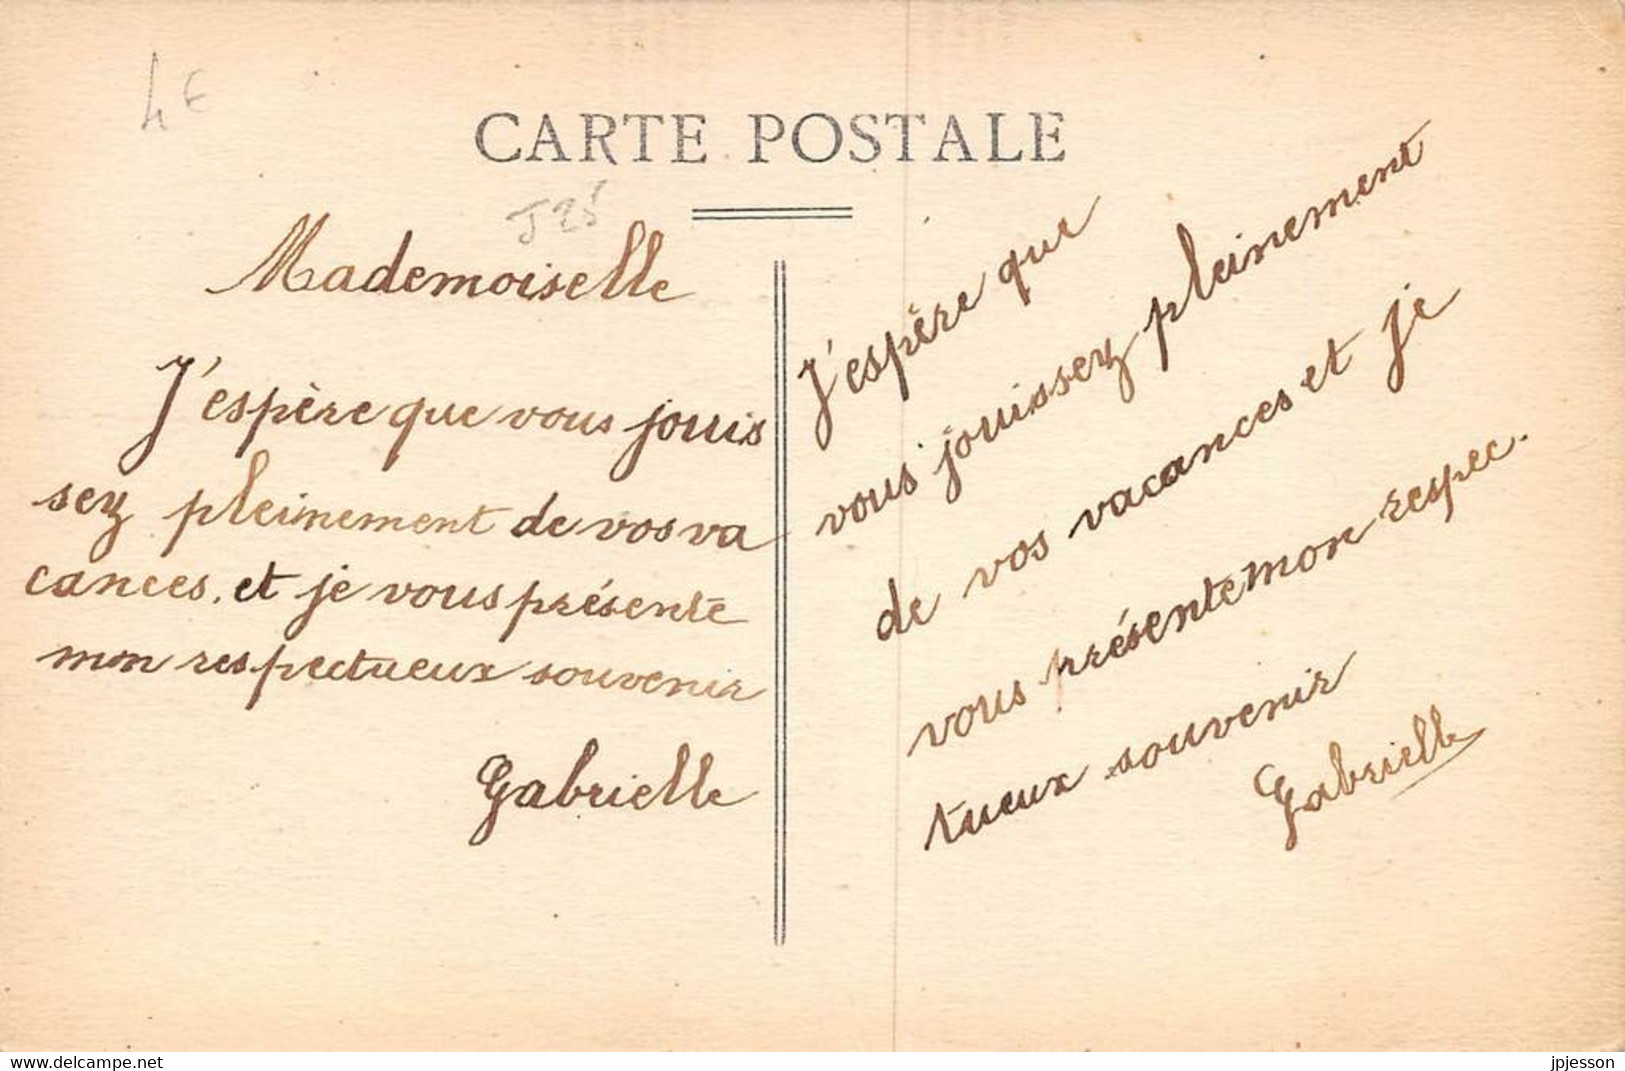 4€
CARTE POSTALE
J25
Mademoiselle
J'espère que vous jouis
sez pleinement de vos va
cances, et je vous présente
mon respectueux souvenir
Gabrielle
J'espère que
vous jouissez pleinement
de vos vacances et je
vous présente mon respec.
tueux souvenir
Gabrielle
www.delcampe.net
jpjesson